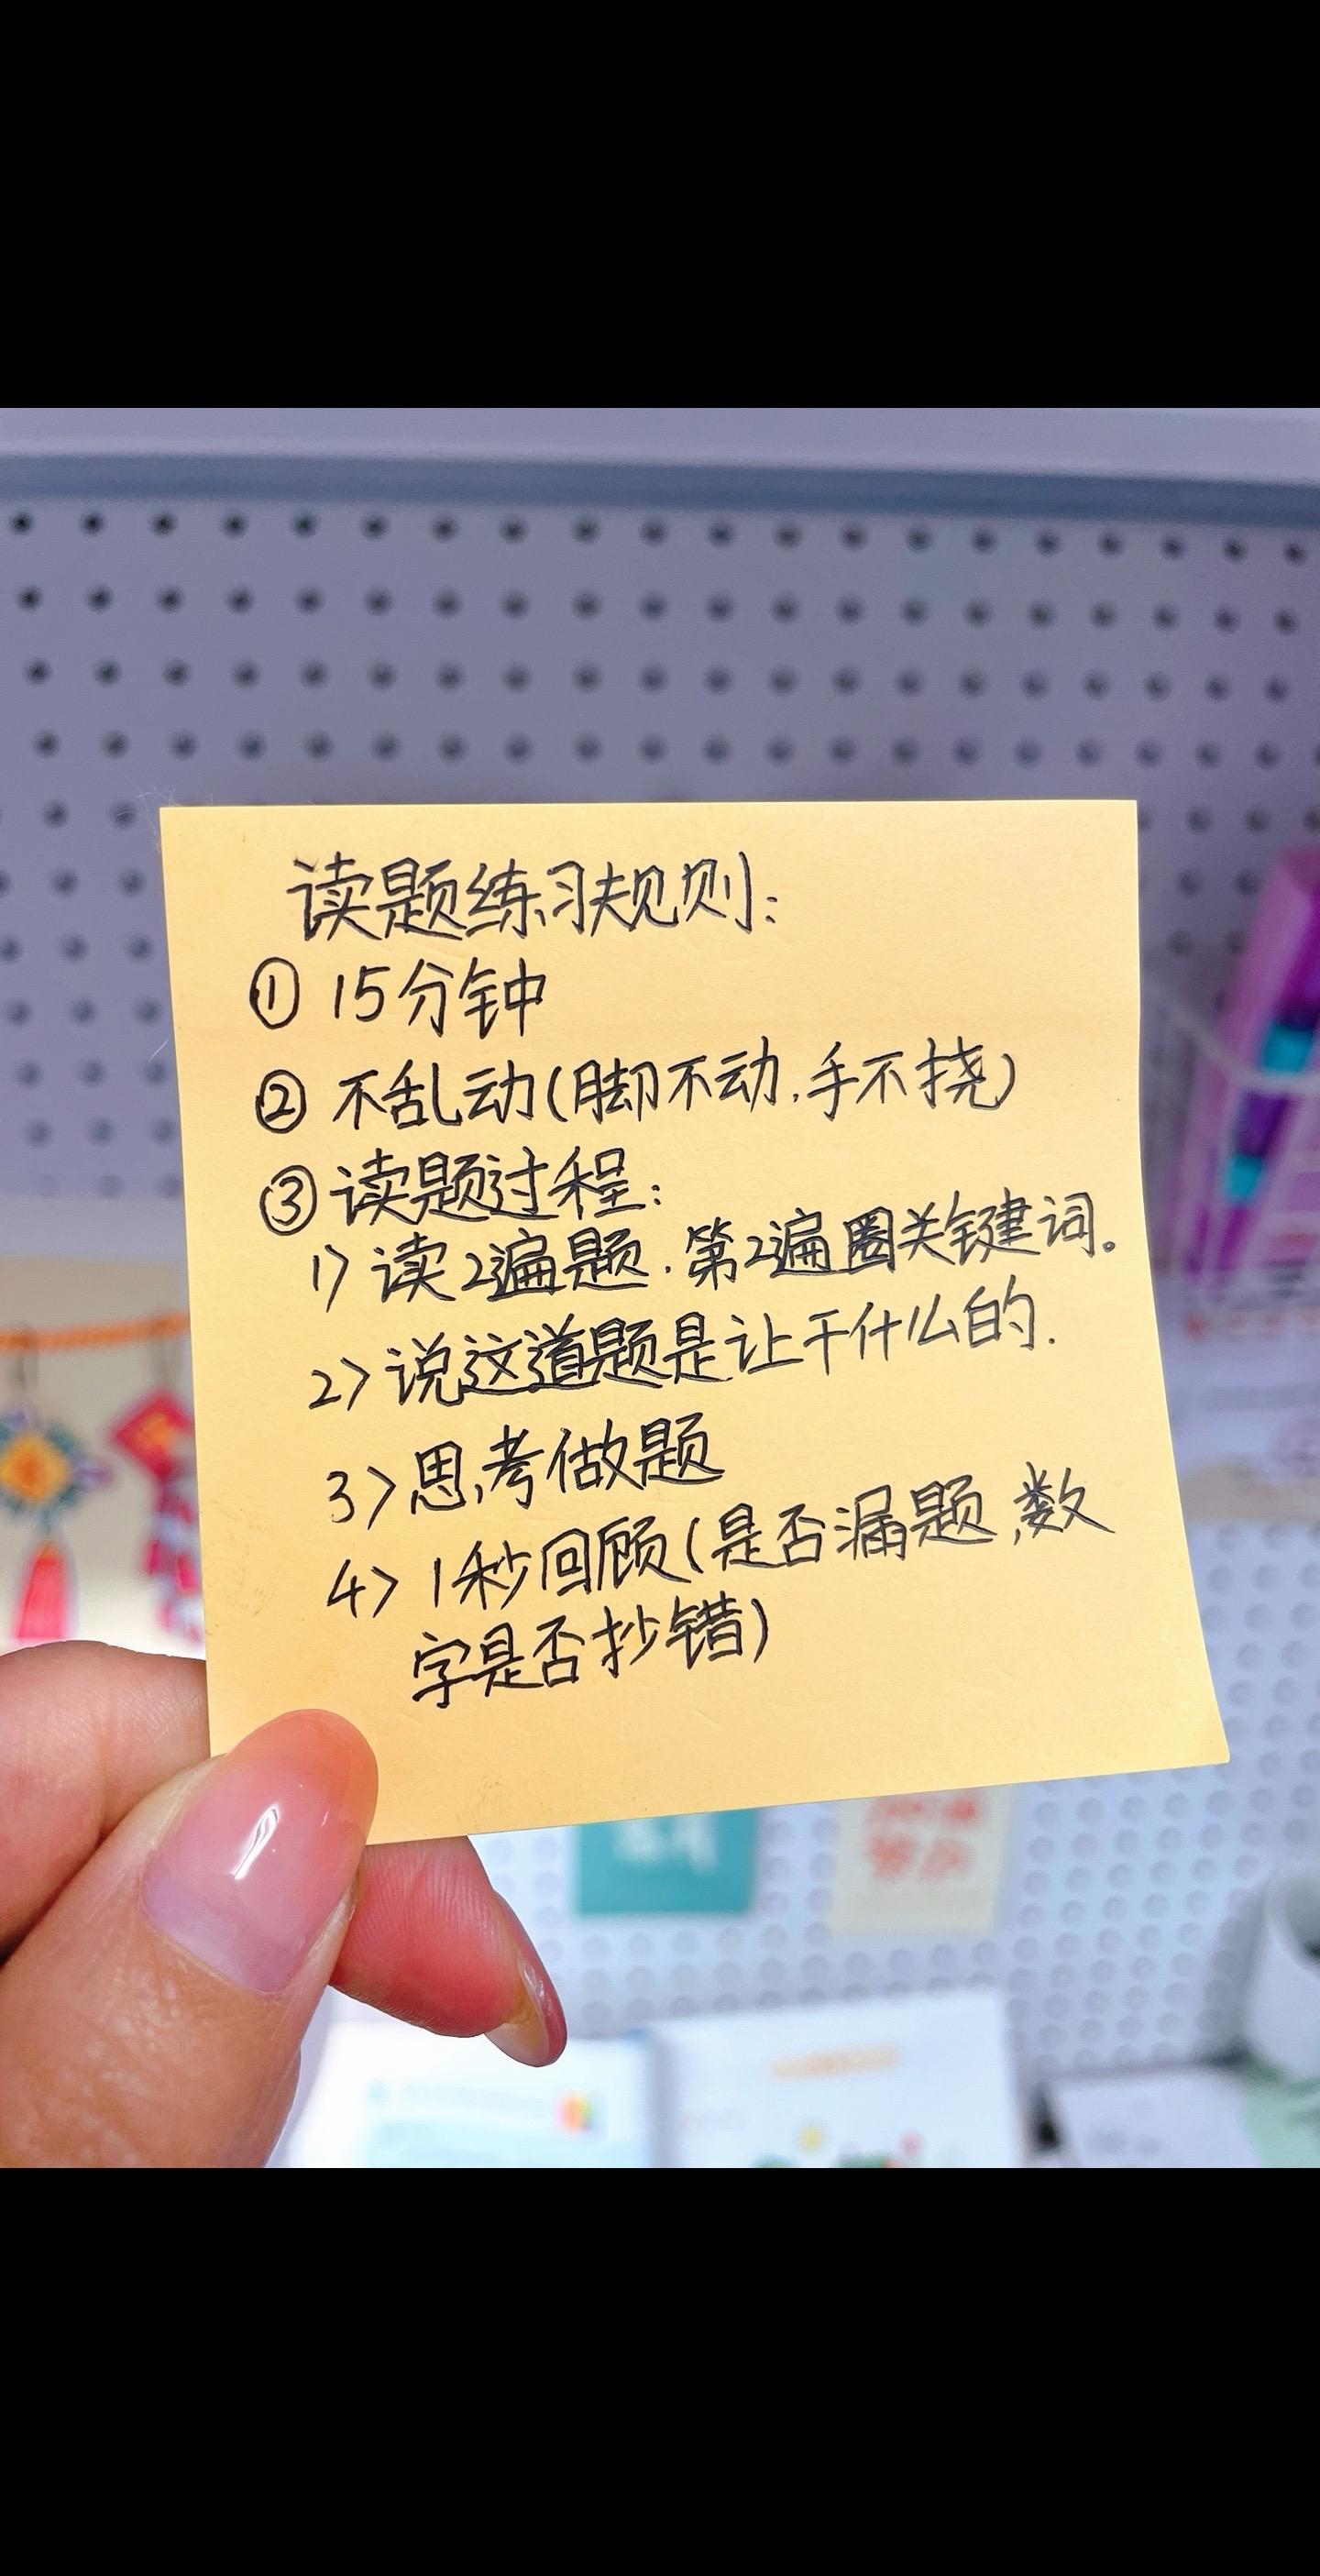 读题练习规则:
① 15分钟
② 不乱动(脚不动,手不挠)
③ 读题过程:
1> 读2遍题,第2遍圈关键词。
2> 说这道题是让干什么的.
3> 思考做题
4> 1秒回顾(是否漏题,数
字是否抄错)